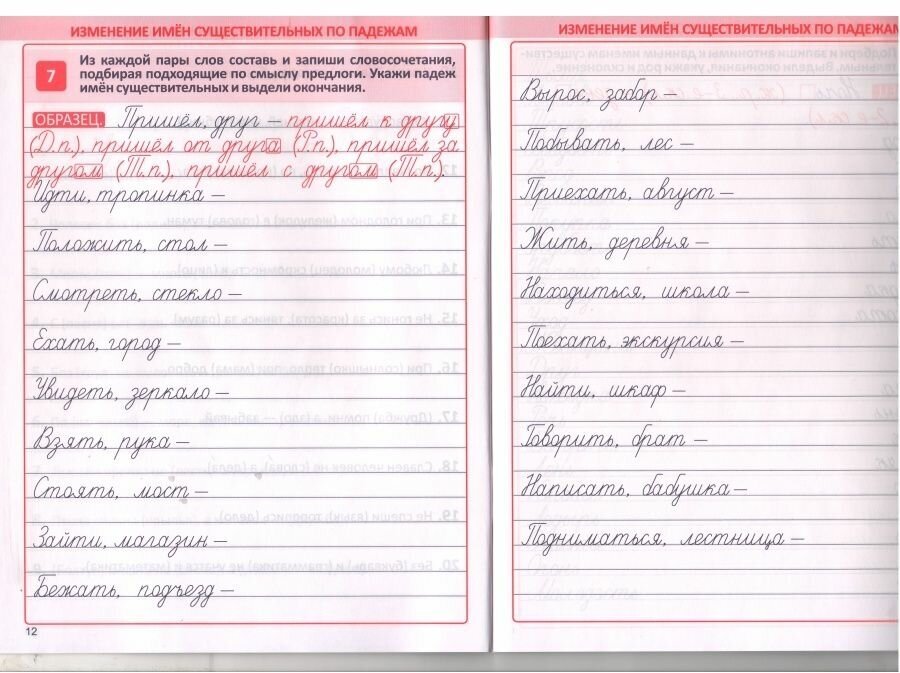 ИЗМЕНЕНИЕ ИМЁН СУЩЕСТВИТЕЛЬНЫХ ПО ПАДЕЖАМ
7
Из каждой пары слов составь и запиши словосочетания,
подбирая подходящие по смыслу предлоги. Укажи падеж
имён существительных и выдели окончания.
ОБРАЗЕЦ. Пришёл, друг – пришёл к другу
(Д.п.), пришёл от друга (Р.п.), пришёл за
другом (Т.п.), пришёл с другом (Т.п.).
Идти, тропинка –
Положить, стол –
Смотреть, стекло –
Ехать, город –
Увидеть, зеркало –
Взять, рука –
Стоять, мост –
Зайти, магазин –
Бежать, подъезд –
12
ИЗМЕНЕНИЕ ИМЁН СУЩЕСТВИТЕЛЬНЫХ ПО ПАДЕЖАМ
Вырос, забор –
Побывать, лес –
Приехать, август –
Жить, деревня –
Находиться, школа –
Поехать, экскурсия –
Найти, шкаф –
Говорить, брат –
Написать, бабушка –
Подниматься, лестница –